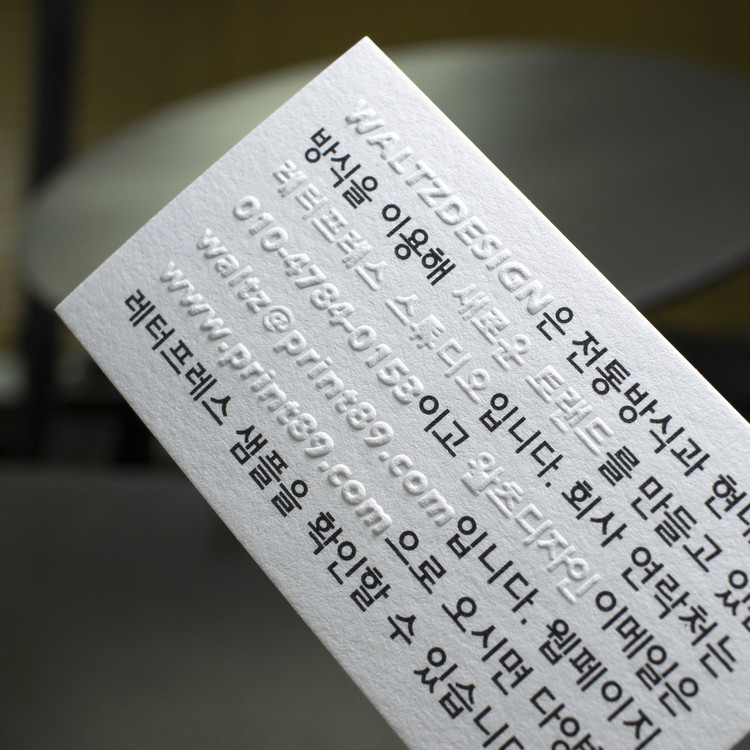 WALTZDESIGN은 전통방식과 현대
방식을 이용해 새로운 트랜드를 만들고 있는
레터프레스 스튜디오입니다. 회사 연락처는
010-4784-0158이고 왈츠디자인 이메일은
waltz@print89.com입니다. 웹페이지
www.print89.com으로 오시면 다양
레터프레스 샘플을 확인할 수 있습니다